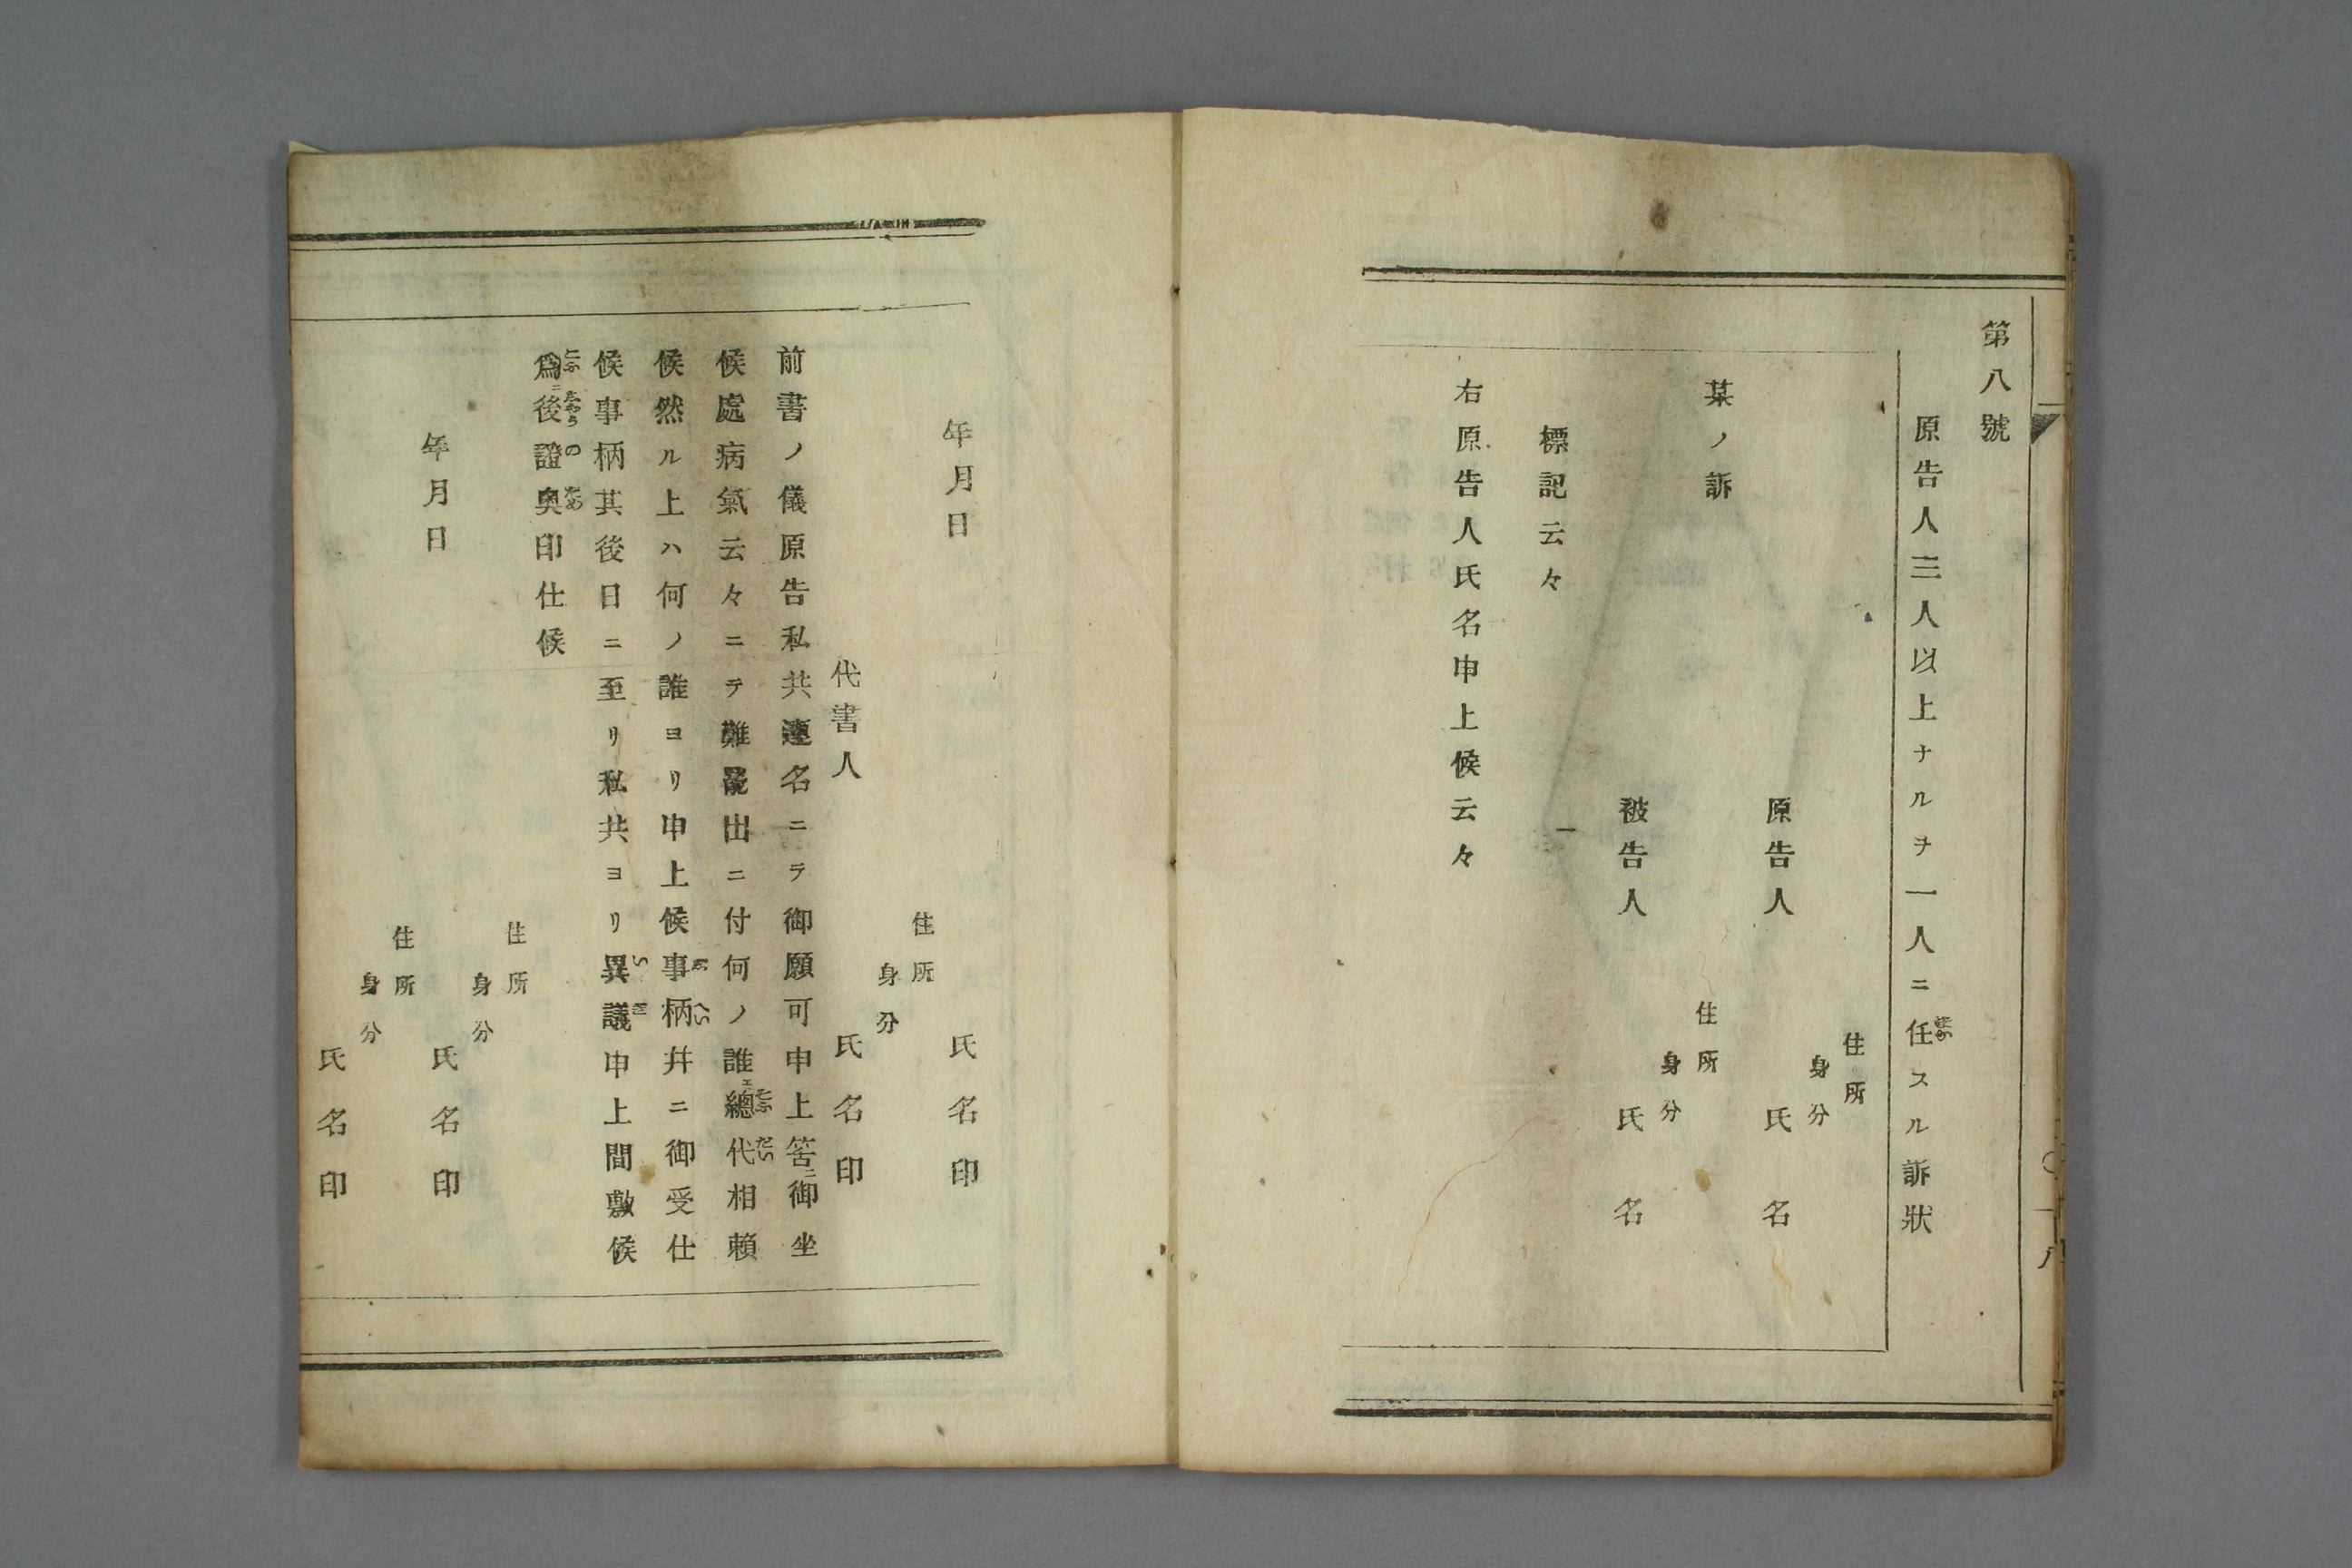 第八號
原告人三人以上ナルヲ一人ニ任スル訴狀
住所
身分
原告人 氏名
某ノ訴
住所
身分
被告人 氏名
標記云々
一
右原告人氏名申上候云々
年月日 氏名印
住所
身分
代書人 氏名印
前書ノ儀原告私共連名ニテ御願可申上筈ニ御坐
候處病氣云々ニテ難罷出ニ付何ノ誰エ總代相賴
候然ル上ハ何ノ誰ヨリ申上候事柄幷ニ御受仕
候事柄其後日ニ至リ私共ヨリ異議申上間敷候
爲ニ後證奥印仕候
住所
身分
年月日 氏名印
住所
身分
氏名印